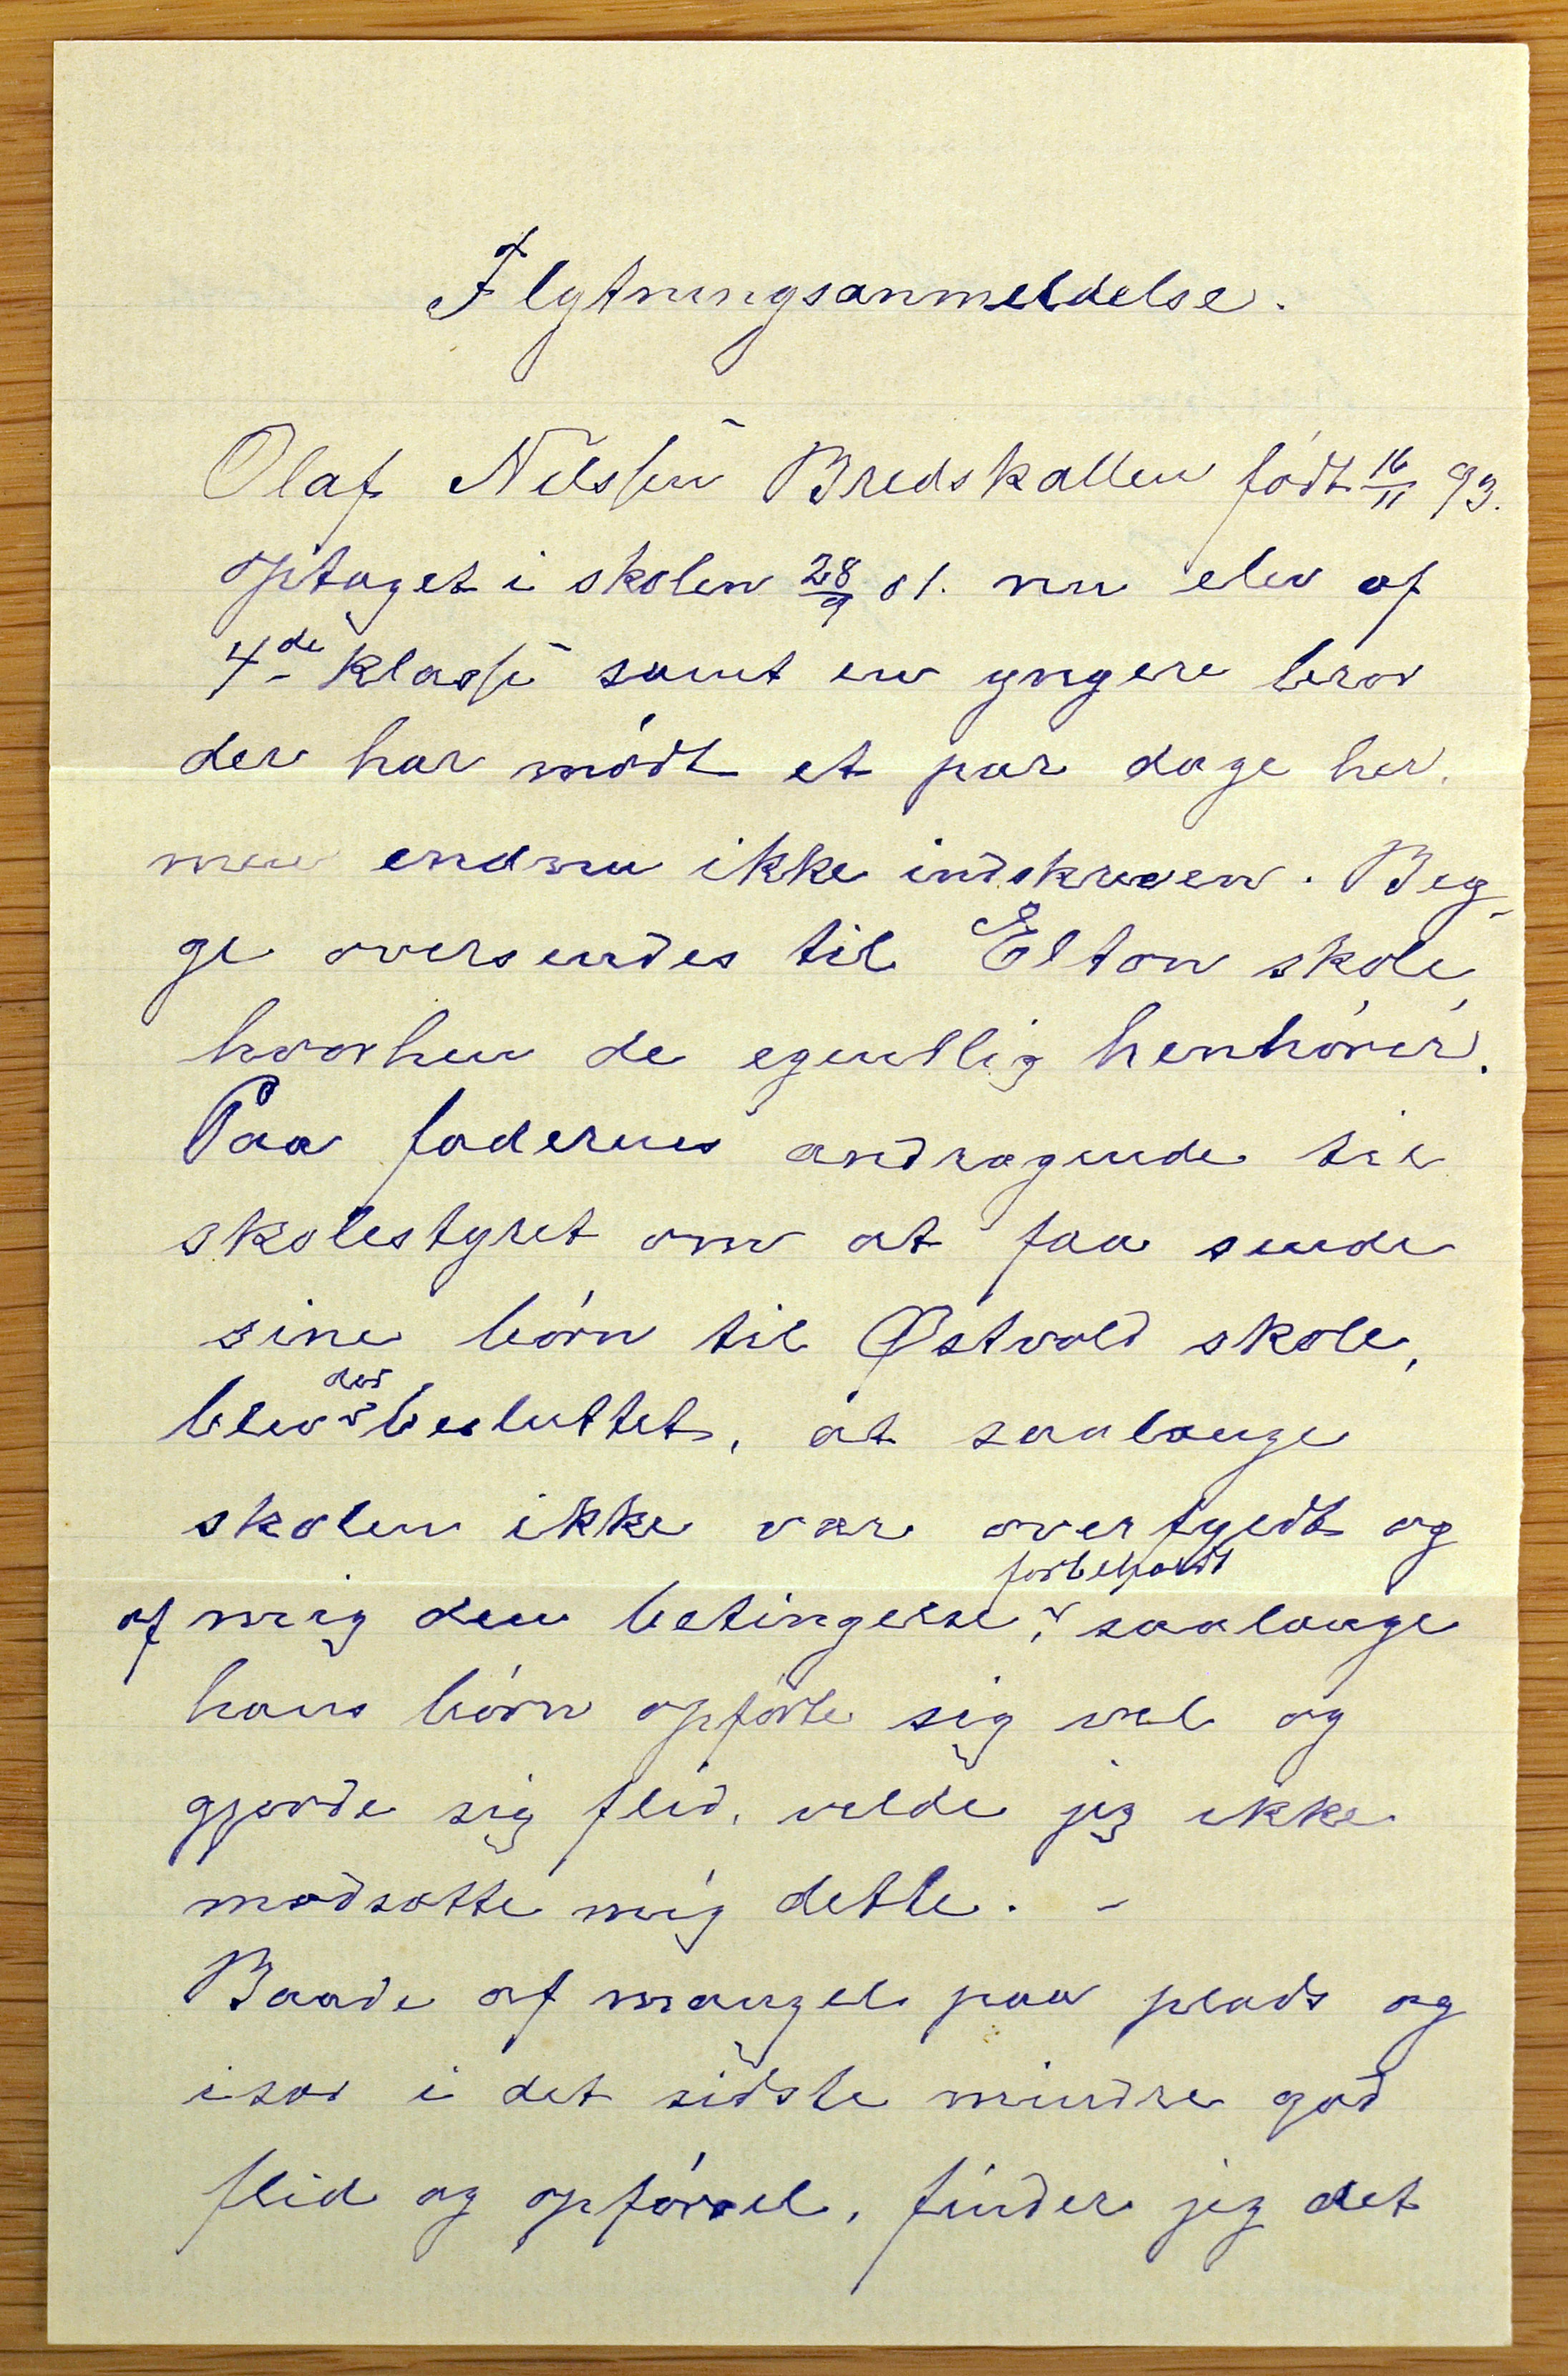 Flytningsanmeldelse.
Olaf Nilssen Bredskallen født 16/11 93.
optaget i skolen 28/9 01. nu elev af
4de klasse samt en yngere bror
der har mødt et par dage her.
men endnu ikke indskreven. Beg-
ge oversendes til Elton skole,
hvorhen de egentlig henhører.
Paa faderens andragende til
skolestyret om at faa sende
sine børn til Østvold skole,
blev der besluttet, at saalænge
skolen ikke var overfyldt og
af mig den betingelse forbeholdt, saalænge
hans børn opførte sig vel og
gjorde sig flid, vilde jeg ikke
modsætte mig dette. -
Baade af mangel paa plads og
især i det sidste mindre god
flid og opførsel, finder jeg det